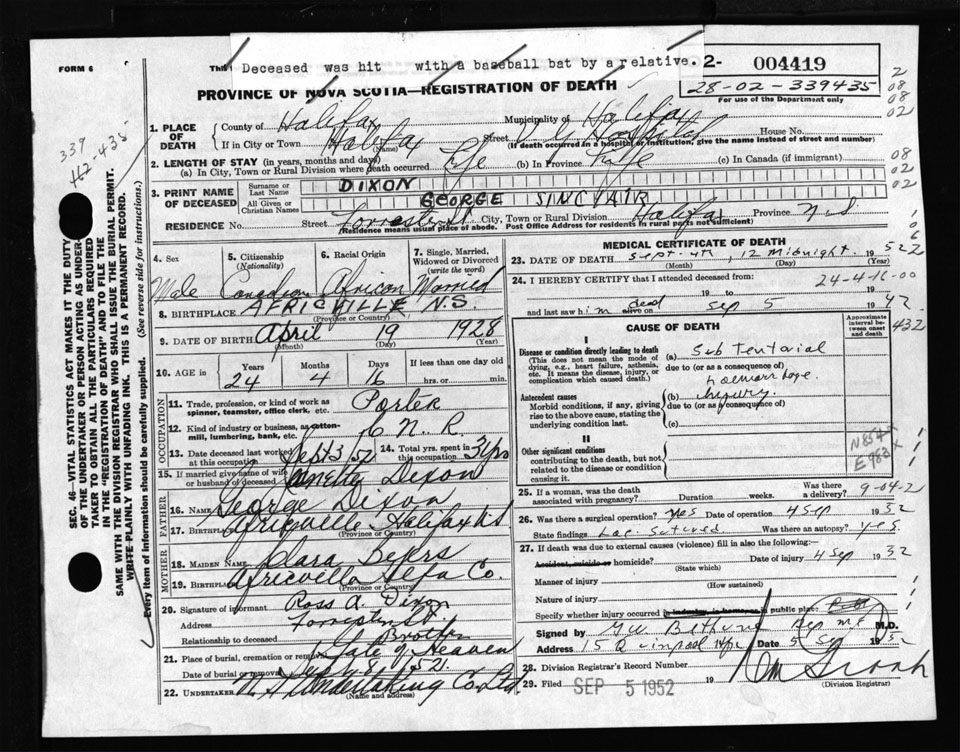 Deceased was hit with a baseball bat by a relative.
FORM 6
This
2- 004419
28-02-339435
For use of the Department only
PROVINCE OF NOVA SCOTIA—REGISTRATION OF DEATH
1. PLACE OF DEATH County of Halifax Municipality of Halifax
If in City or Town Halifax (Name) Street V.G. Hospital House No.
(If death occurred in a hospital or institution, give the name instead of street and number)
2. LENGTH OF STAY (in years, months and days)
(a) In City, Town or Rural Division where death occurred Life (b) In Province Life (c) In Canada (if immigrant)
3. PRINT NAME OF DECEASED Surname or Last Name DIXON
All Given or Christian Names GEORGE SINCLAIR
RESIDENCE No. Street Forrester St City, Town or Rural Division Halifax Province N.S
(Residence means usual place of abode. Post Office Address for residents in rural parts not sufficient)
4. Sex Male
5. Citizenship (Nationality) Canadian
6. Racial Origin African
7. Single, Married, Widowed or Divorced (write the word) Married
8. BIRTHPLACE AFRICVILLE N.S.
(Province or Country)
9. DATE OF BIRTH April 19 1928
(Month) (Day) (Year)
10. AGE in Years 24 Months 4 Days 16 If less than one day old hrs. or min.
OCCUPATION
11. Trade, profession, or kind of work as spinner, teamster, office clerk, etc. Porter
12. Kind of industry or business, as cotton-mill, lumbering, bank, etc. C.N.R.
13. Date deceased last worked at this occupation Sept 3/52
14. Total yrs. spent in this occupation 3 yrs
15. If married give name of wife or husband of deceased Janette Dixon
FATHER
16. NAME George Dixon
17. BIRTHPLACE Africville Halifax N.S
(Province or Country)
MOTHER
18. MAIDEN NAME Clara Byers
19. BIRTHPLACE Africville Hfx Co.
(Province or Country)
20. Signature of informant Ross A. Dixon
Address Forrester St.
Relationship to deceased Brother
21. Place of burial, cremation or removal Gate of Heaven
Date of burial or removal Sept 8 1952.
22. UNDERTAKER N.S. Undertaking Co. Ltd
(Name and address)
MEDICAL CERTIFICATE OF DEATH
23. DATE OF DEATH Sept. 4th, 12 Midnight. 1952
(Month) (Day) (Year)
24. I HEREBY CERTIFY that I attended deceased from 24-4-16-00
19 to 19
and last saw him dead alive on Sep 5
CAUSE OF DEATH
Approximate interval between onset and death
I
Disease or condition directly leading to death (a) Sub tentorial
(This does not mean the mode of dying, e.g., heart failure, asthenia, etc. It means the disease, injury, or complication which caused death.)
due to (or as a consequence of)
haemorrhage.
Antecedent causes (b) Injury.
Morbid conditions, if any, giving rise to the above cause, stating the underlying condition last.
due to (or as a consequence of)
(c)
II
Other significant conditions
contributing to the death, but not related to the disease or condition causing it.
N854
E983
25. If a woman, was the death associated with pregnancy? Duration weeks. Was there a delivery? 9-04-2
26. Was there a surgical operation? yes Date of operation 4 Sep 1952
State findings Lac. Sutured Was there an autopsy? yes.
27. If death was due to external causes (violence) fill in also the following:—
Accident, suicide or homicide? (State which) Date of injury 4 Sep 1952
Manner of injury (How sustained)
Nature of injury
Specify whether injury occurred in industry, in home, or in public place
Signed by M.D.
Address 15 Quinpool Hfx Date 5 Sep 1952
28. Division Registrar's Record Number
29. Filed SEP 5 1952 19
(Division Registrar)
SEC. 46—VITAL STATISTICS ACT MAKES IT THE DUTY OF THE UNDERTAKER OR PERSON ACTING AS UNDERTAKER TO OBTAIN ALL THE PARTICULARS REQUIRED IN THE "REGISTRATION OF DEATH" AND TO FILE THE SAME WITH THE DIVISION REGISTRAR WHO SHALL ISSUE THE BURIAL PERMIT.
WRITE PLAINLY WITH UNFADING INK. THIS IS A PERMANENT RECORD.
Every item of information should be carefully supplied. (See reverse side for instructions.)